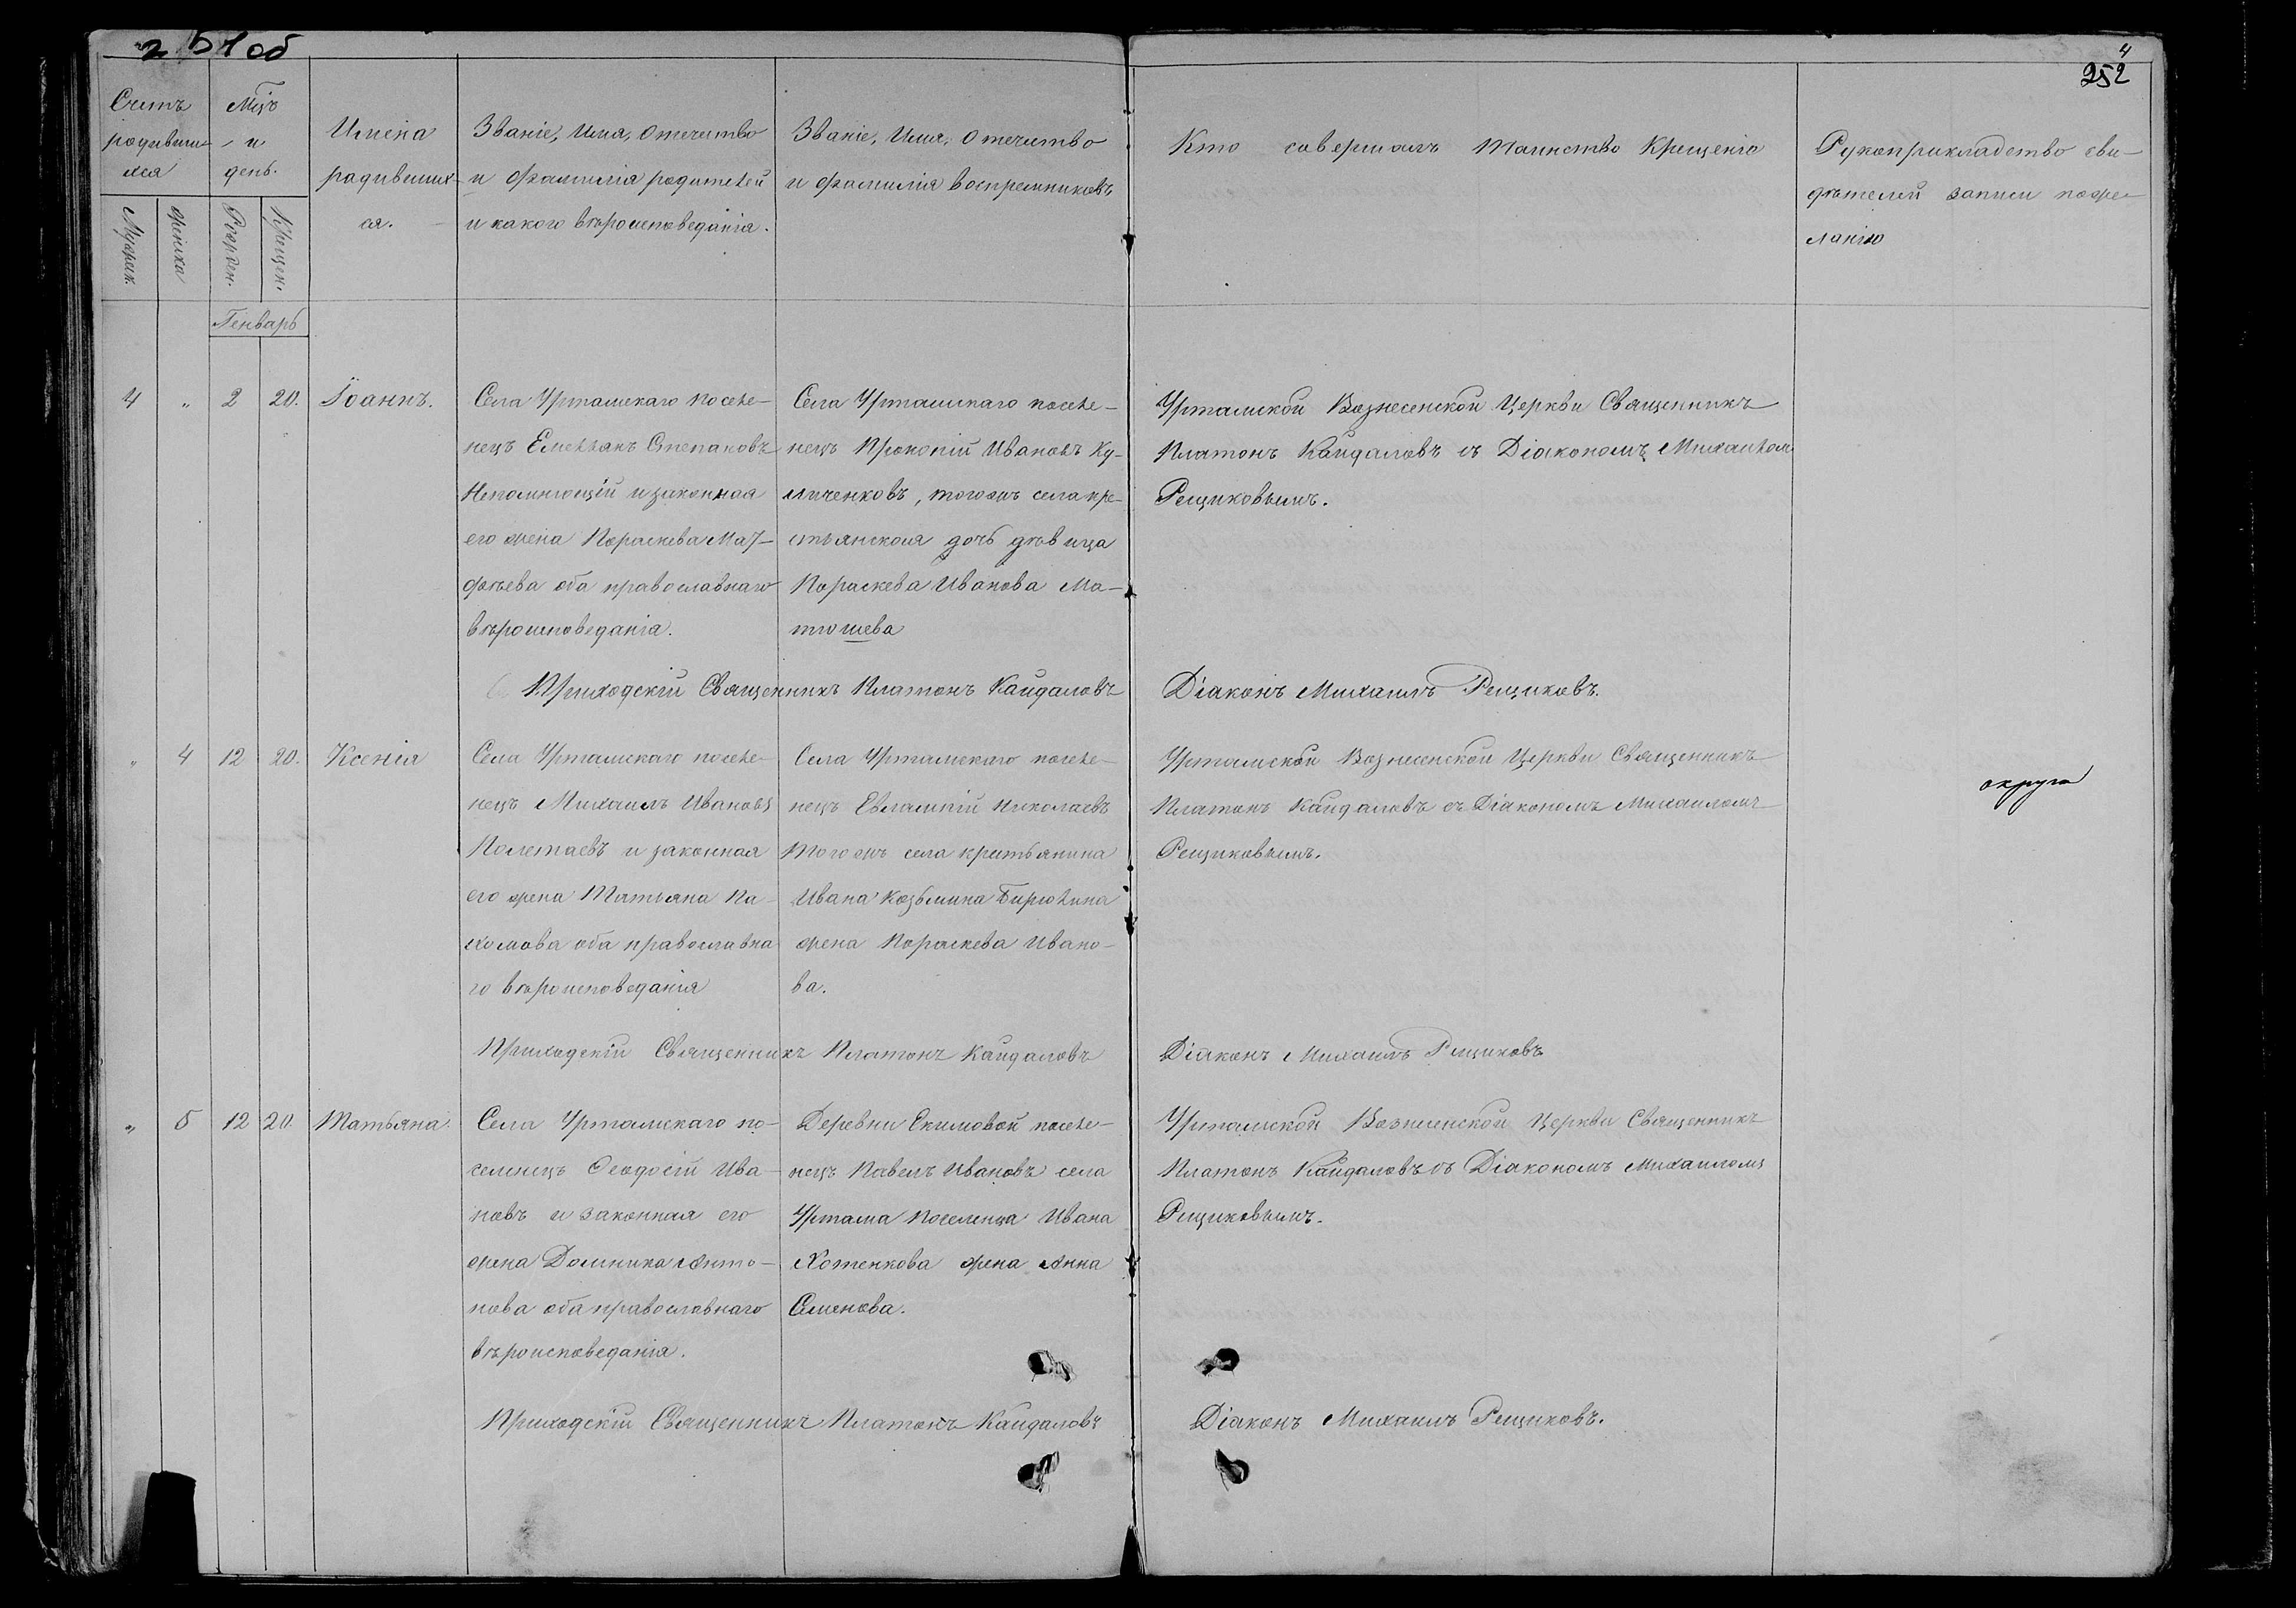 251 об
4
252
Счетъ родивших-ся
Мцъ и день.
Имена родивших-ся.
Званіе, Имя, Отечество и Фамилія родителей и какого вѣроисповеданія.
Званіе, Имя, Отечество и фамилія воспреимниковъ
Кто совершалъ Таинство Крещенія
Рукоприкладство сви-дѣтелей записи по же-ланію
Мужеск.
Женска
Рожден.
Крещен.
Генварь
4 " 2 20. Іоаннъ.
Села Уртамскаго поселе-
нецъ Емельянъ Степановъ
Непомнющій и законная
его жена Пораскева Мат-
фѣева оба православнаго
вѣроисповеданія.
Села Уртамскаго поселе-
нецъ Прокопій Ивановъ Ку-
личенковъ, тогожъ села кре-
стьянская дочь дѣвица
Пораскева Иванова Ма-
тюшева
Уртамской Вознесенской Церкви Священникъ
Платонъ Кайдаловъ съ Діакономъ Михаиломъ
Рещиковымъ.
Приходскій Священникъ Платонъ Кайдаловъ
Діаконъ Михаилъ Рещиковъ.
" 4 12 20. Ксенія
Села Уртамскаго поселе-
нецъ Михаилъ Ивановъ
Полетаевъ и законная
его жена Татьяна Па-
хомова оба православна
го вѣроисповеданія
Села Уртамскаго поселе-
нецъ Евлампій Николаевъ
Того жъ села кретьянина
Ивана Козьмина Бирюлина
жена Пораскева Ивано-
ва.
Уртамской Вознесенской Церкви Священникъ
Платонъ Кайдаловъ съ Діакономъ Михаиломъ
Рещиковымъ.
округа
Приходскій Священникъ Платонъ Кайдаловъ
Діаконъ Михаилъ Рещиковъ
" 5 12 20. Татьяна.
Села Уртамскаго по-
селенецъ Ѳеодосій Ива-
новъ и законная его
жена Домника Анто-
нова оба православнаго
вѣроисповеданія.
Деревни Екимовой поселе-
нецъ Павелъ Ивановъ села
Уртама Поселенца Ивана
Хотенкова жена Анна
Семенова.
Уртамской Вознесенской Церкви Священникъ
Платонъ Кайдаловъ съ Діакономъ Михаиломъ
Рещиковымъ.
Приходскій Священникъ Платонъ Кайдаловъ
Діаконъ Михаилъ Рещиковъ.